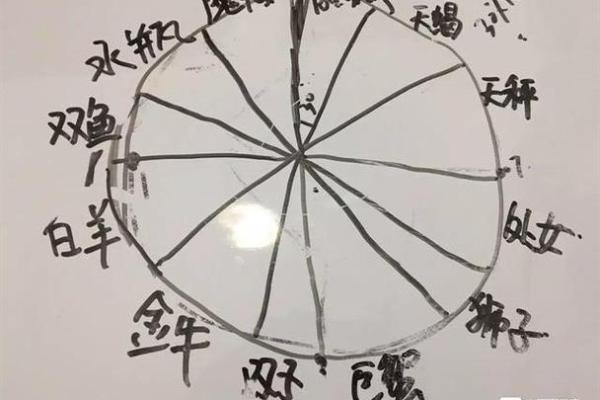 天蝎
水瓶
天秤
双鱼
白羊
处女
金牛
狮子
双子
巨蟹